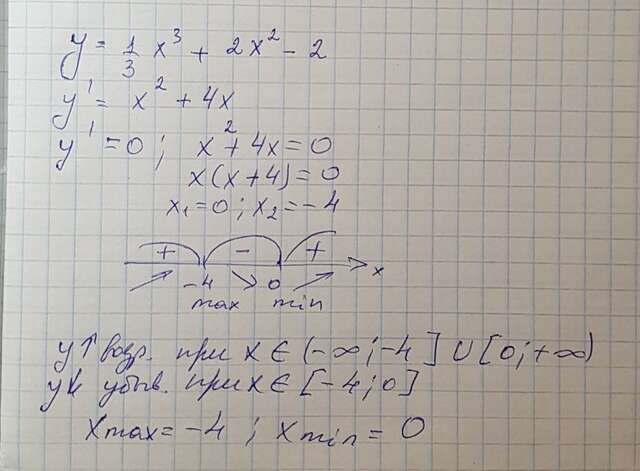 y = 1/3 x³ + 2x² - 2
y' = x² + 4x
y' = 0 ; x² + 4x = 0
x(x+4) = 0
x₁ = 0 ; x₂ = -4
+ - +
-4 0 x
max min
y↑ возр. при x ∈ (-∞; -4] ∪ [0; +∞)
y↓ убыв. при x ∈ [-4; 0]
x max = -4 ; x min = 0